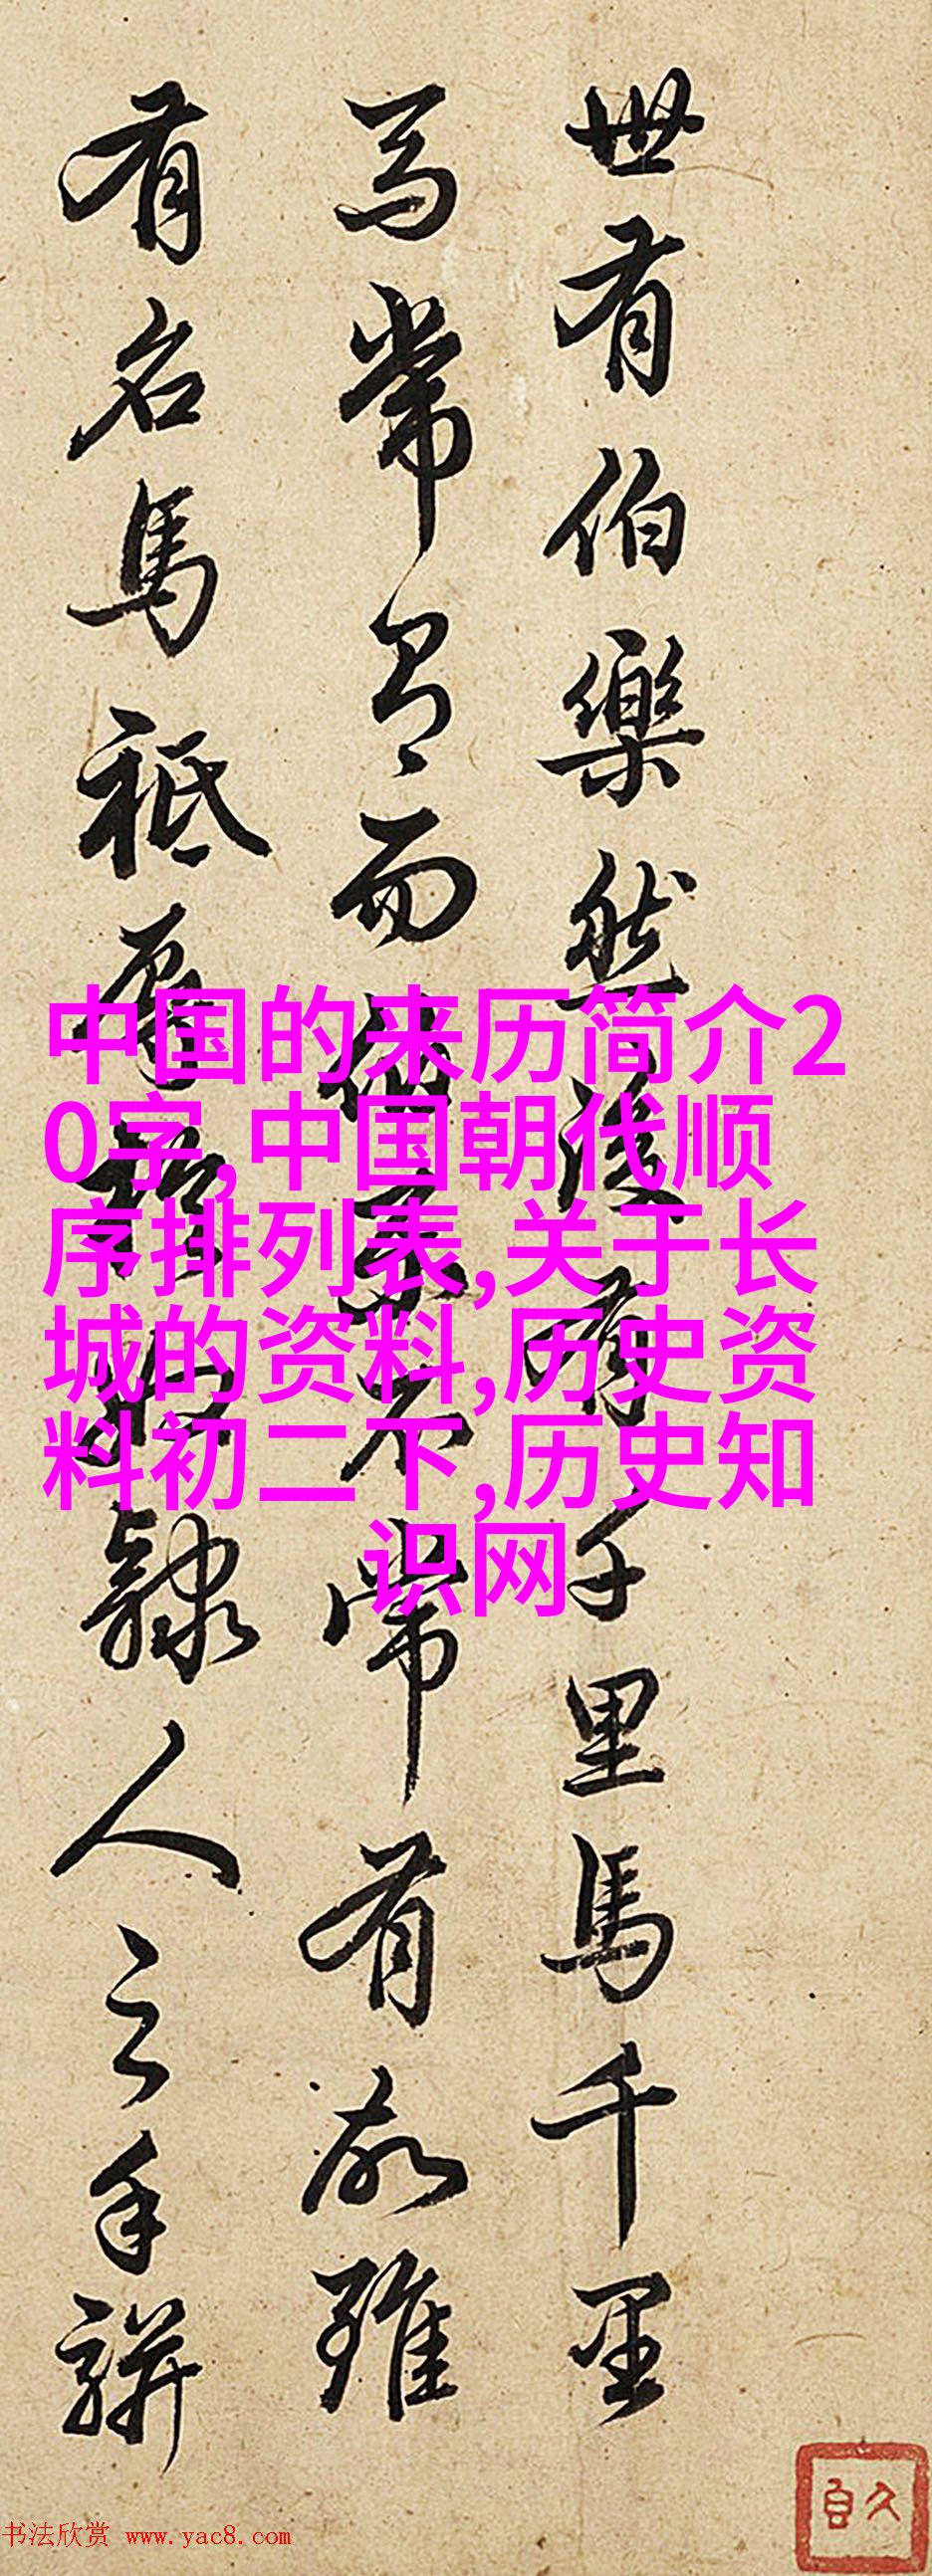 世有伯樂然後有千里馬千里
馬常有而伯樂不常有故雖
有名馬祇辱於奴隸人之手駢
中国的来历简介2
0字,中国朝代顺
序排列表,关于长
城的资料,历史资
料初二下,历史知
识网
书法欣赏 www.yac8.com